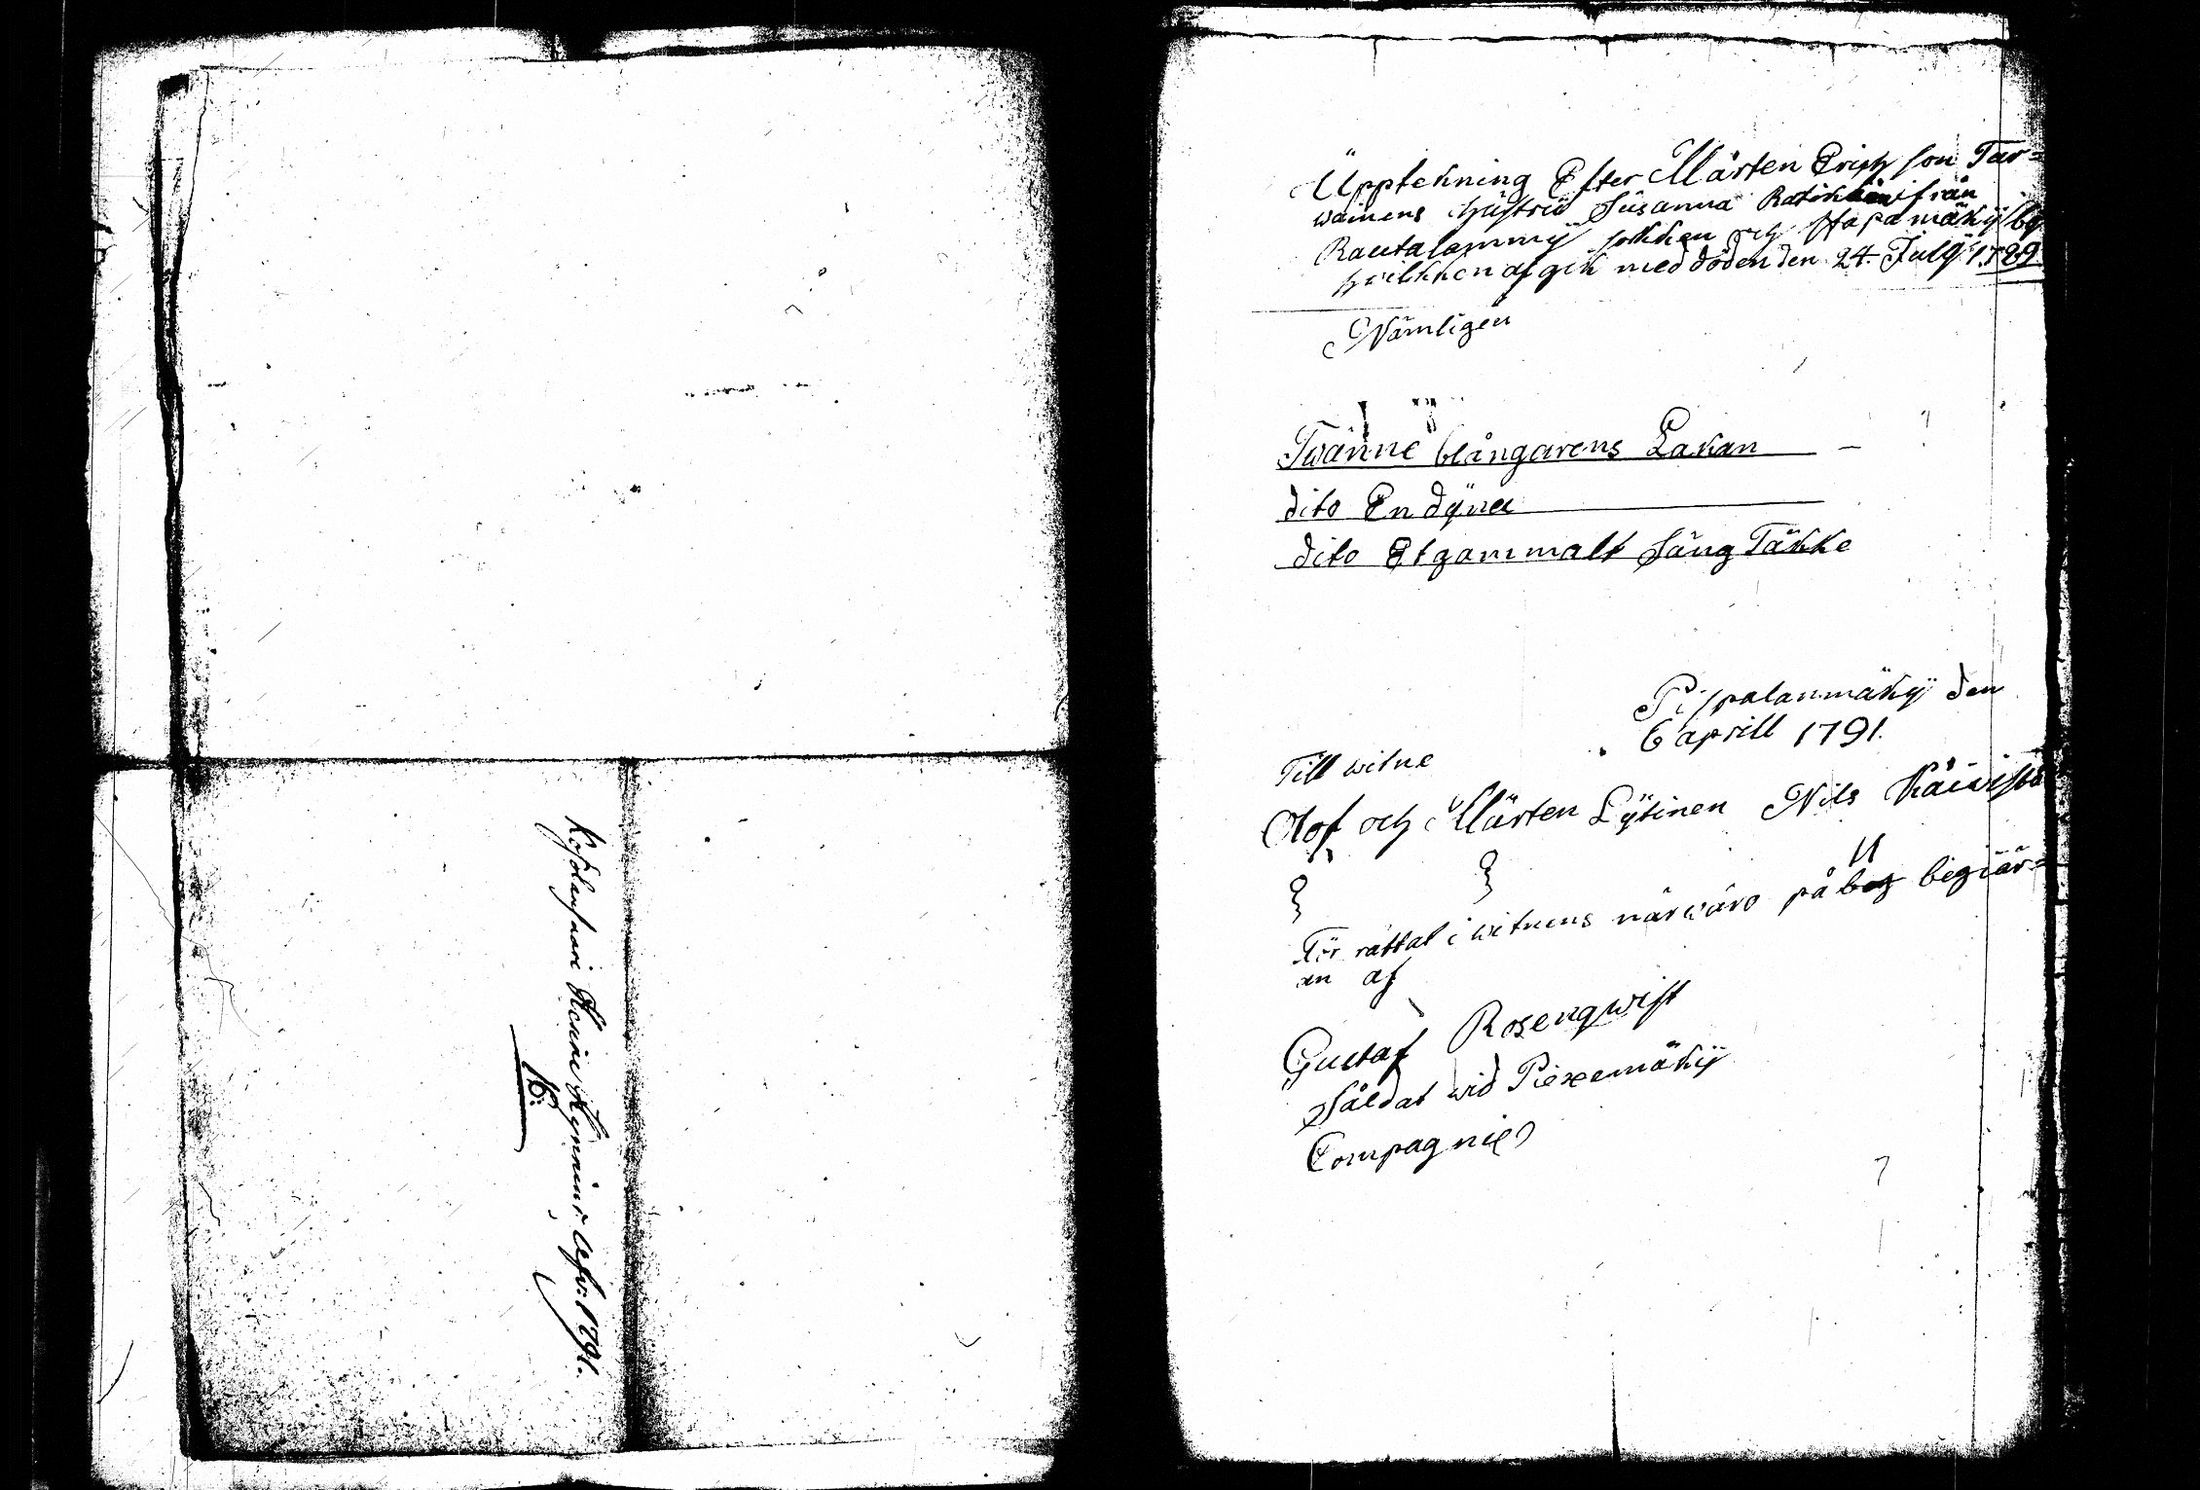 Kåsolansaari Henric Hynnine. Afv: 1791.
16:
Üpptekning Efter Mårten Erich son Tar=
wainens hüstrü Süsanna Ratikain från
Rautalammÿ sokken och Hapamäkÿ by
hvilkken afgik med döden den 24. Julÿ 1789
Nämligen
Twänne blångarens Lakan
dito En dÿna
dito Et gammalt Säng Täkke
Pispalanmäkÿ den
6 aprill 1791.
Till witne
Olof och Mårten Lÿtinen Nils Käiwistö
För rättat i witnens närwaro på beg begiär=
an af
Gustaf Rosenqwist
Såldat wid Piexemäkÿ
Compagnie